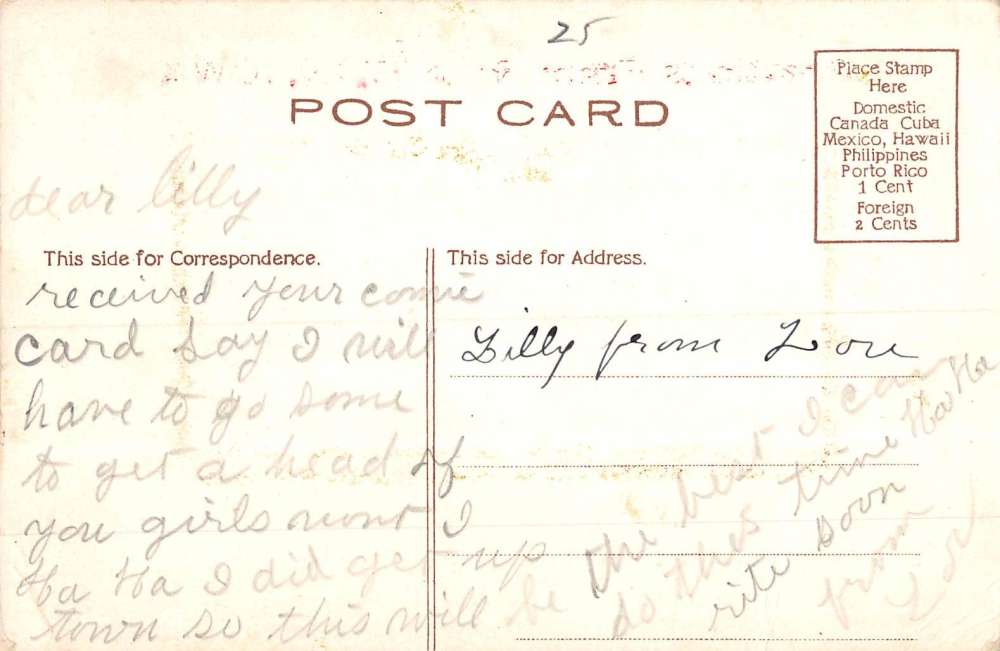 25
POST CARD
Place Stamp
Here
Domestic
Canada Cuba
Mexico, Hawaii
Philippines
Porto Rico
1 Cent
Foreign
2 Cents
dear lilly
This side for Correspondence.
received your comic
card Say I will
have to go some
to get a head of
you girls wont I
Ha Ha I did get up
town so this will be the best I can
do this time Ha Ha
rite soon
from
Lou
This side for Address.
Lilly from Lou